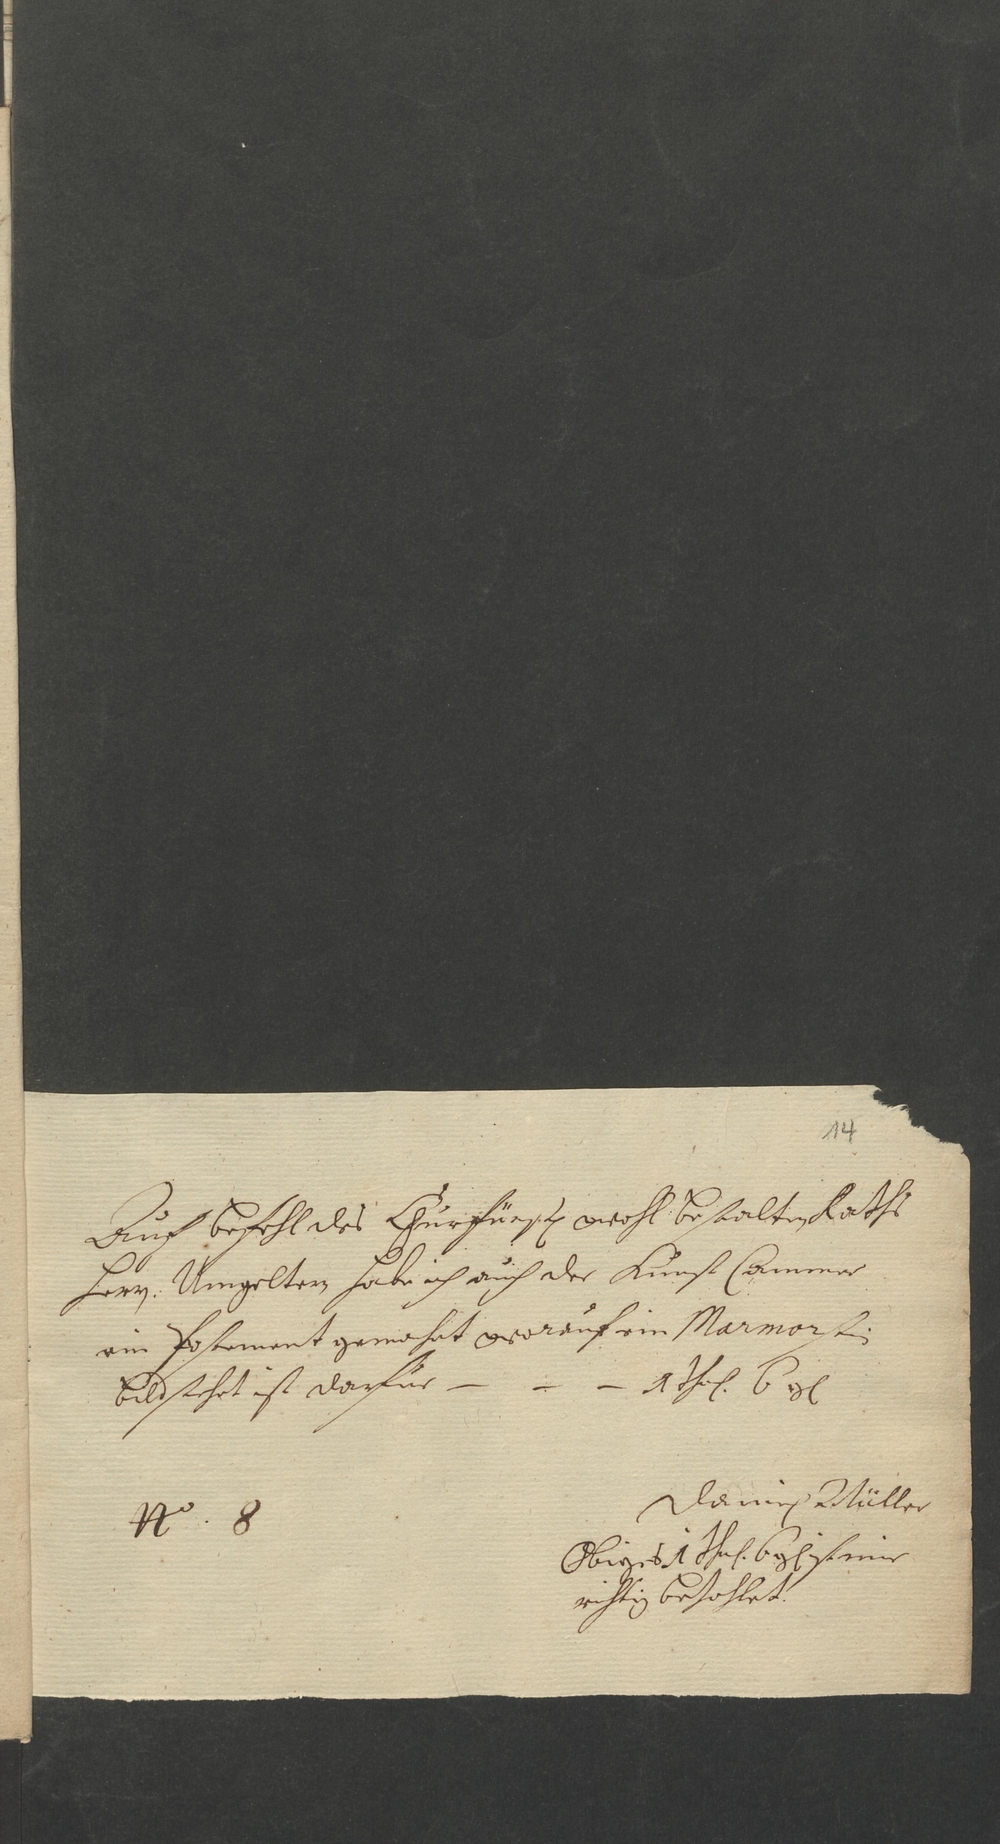 14
Auf befehl des Churfürstl wohl bestalten Raths
Herr. Umgelter habe ich auf der Kunst Cammer
ein Postement gemacht worauf ein Marmorstein
bild stehet ist darfür — — — 1 Thl. 6 gl
Daniel Müller
No. 8
Obiges 1 Thl. 6 gl ist mir
richtig bezahlet.